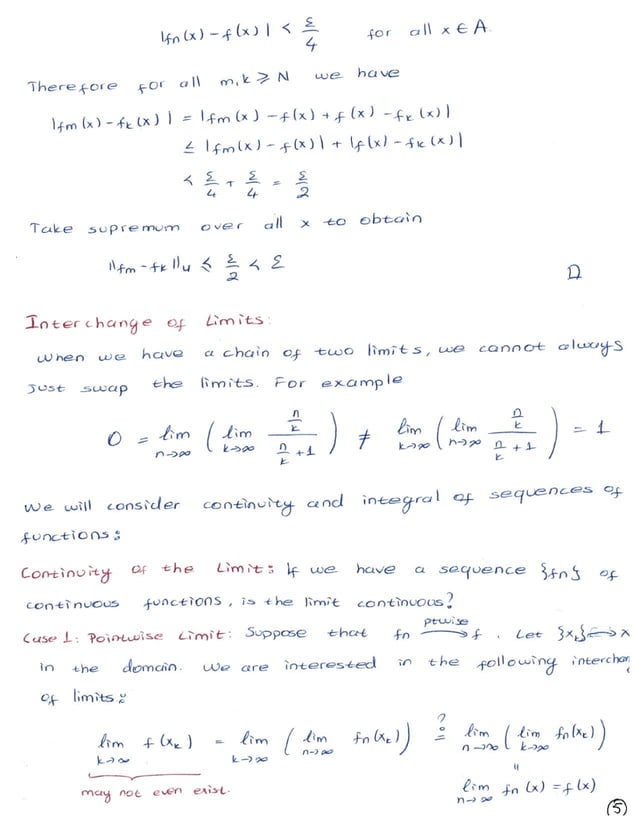 |fn(x) - f(x)| < ε/4 for all x ∈ A.
Therefore for all m,k ≥ N we have
|fm(x) - fk(x)| = |fm(x) - f(x) + f(x) - fk(x)|
≤ |fm(x) - f(x)| + |f(x) - fk(x)|
< ε/4 + ε/4 = ε/2
Take supremum over all x to obtain
||fm - fk||u ≤ ε/2 < ε □
Interchange of Limits:
When we have a chain of two limits, we cannot always
just swap the limits. For example
0 = lim n→∞ ( lim k→∞ (n/k)/(n/k + 1) ) ≠ lim k→∞ ( lim n→∞ (n/k)/(n/k + 1) ) = 1
We will consider continuity and integral of sequences of
functions:
Continuity of the Limit: If we have a sequence {fn} of
continuous functions, is the limit continuous?
Case 1: Pointwise Limit: Suppose that fn ptwise→ f. Let {xk} → x
in the domain. We are interested in the following interchan
of limits:
lim k→∞ f(xk) = lim k→∞ ( lim n→∞ fn(xk) ) ?= lim n→∞ ( lim k→∞ fn(xk) )
=
may not even exist. lim n→∞ fn(x) = f(x)
5